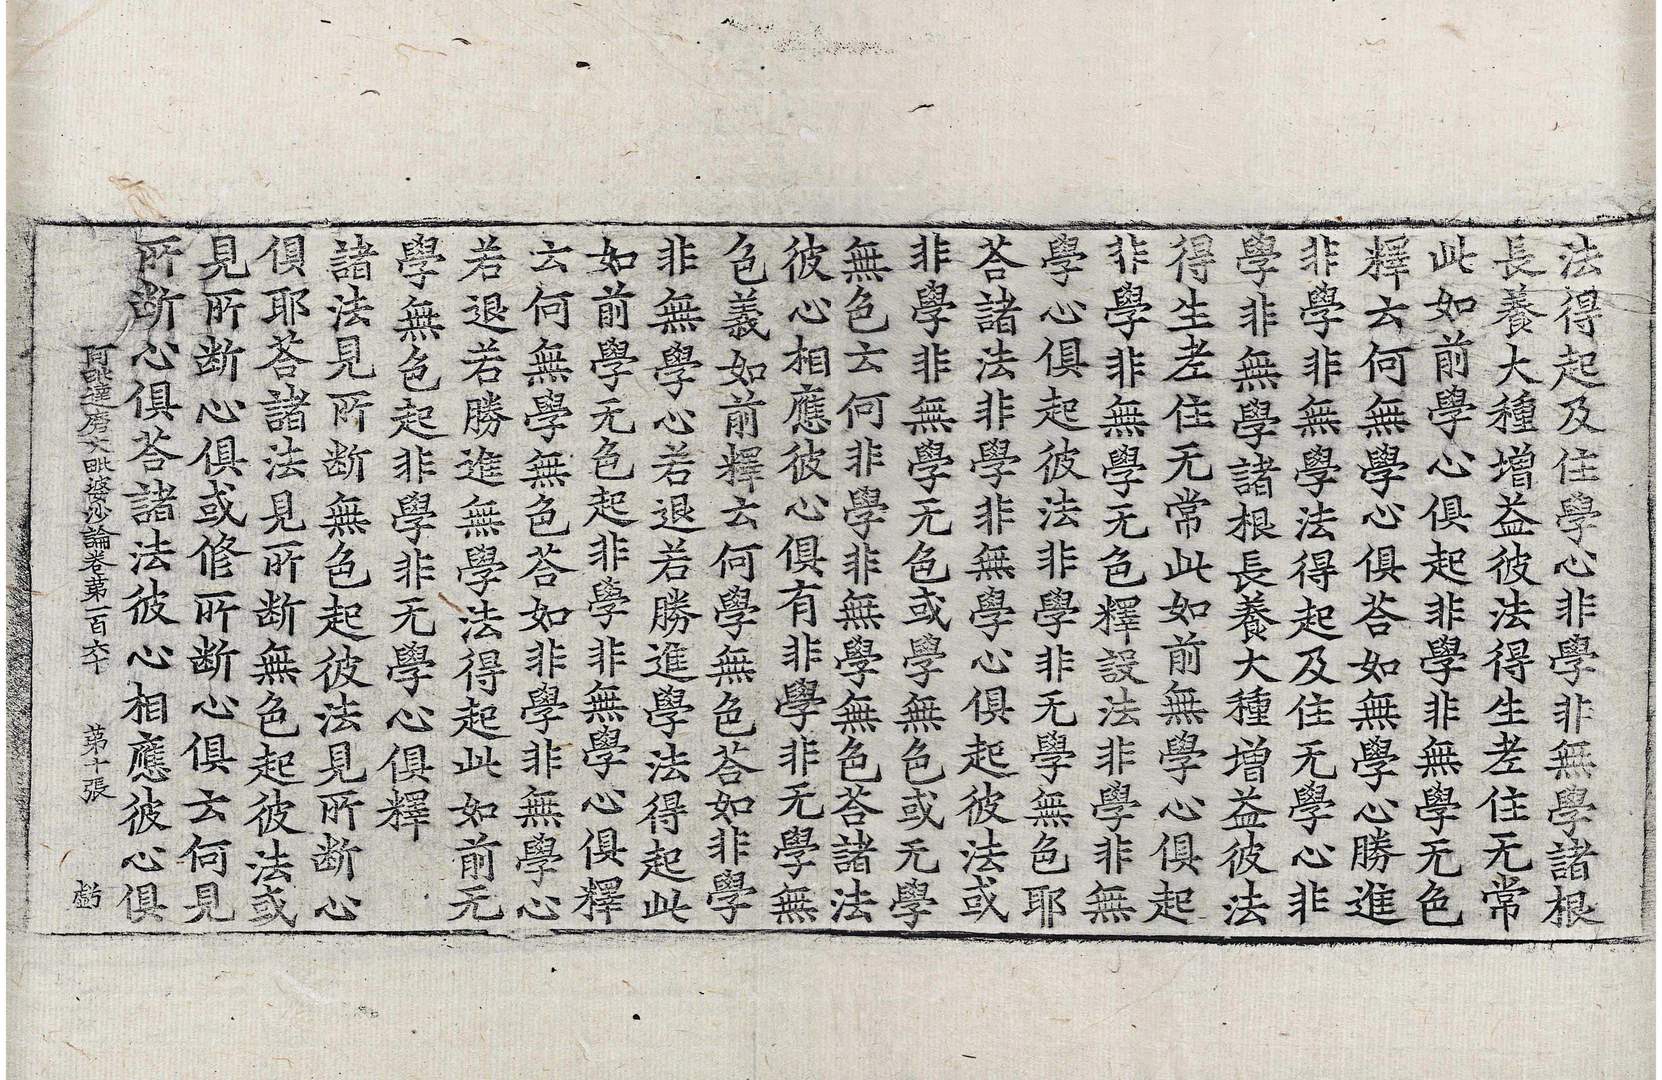 法得起及住學心非學非無學諸根
長養大種增益彼法得生老住无常
此如前學心俱起非學非無學无色
釋云何無學心俱荅如無學心勝進
非學非無學法得起及住无學心非
學非無學諸根長養大種增益彼法
得生老住无常此如前無學心俱起
非學非無學无色釋設法非學非無
學心俱起彼法非學非无學無色耶
荅諸法非學非無學心俱起彼法或
非學非無學无色或學無色或无學
無色云何非學非無學無色荅諸法
彼心相應彼心俱有非學非无學無
色義如前釋云何學無色荅如非學
非無學心若退若勝進學法得起此
如前學无色起非學非無學心俱釋
云何無學無色荅如非學非無學心
若退若勝進無學法得起此如前无
學無色起非學非无學心俱釋
諸法見所断無色起彼法見所断心
俱耶荅諸法見所断無色起彼法或
見所断心俱或修所断心俱云何見
所断心俱荅諸法彼心相應彼心俱
阿毗達磨大毗婆沙論卷第一百六十　第十張　虧